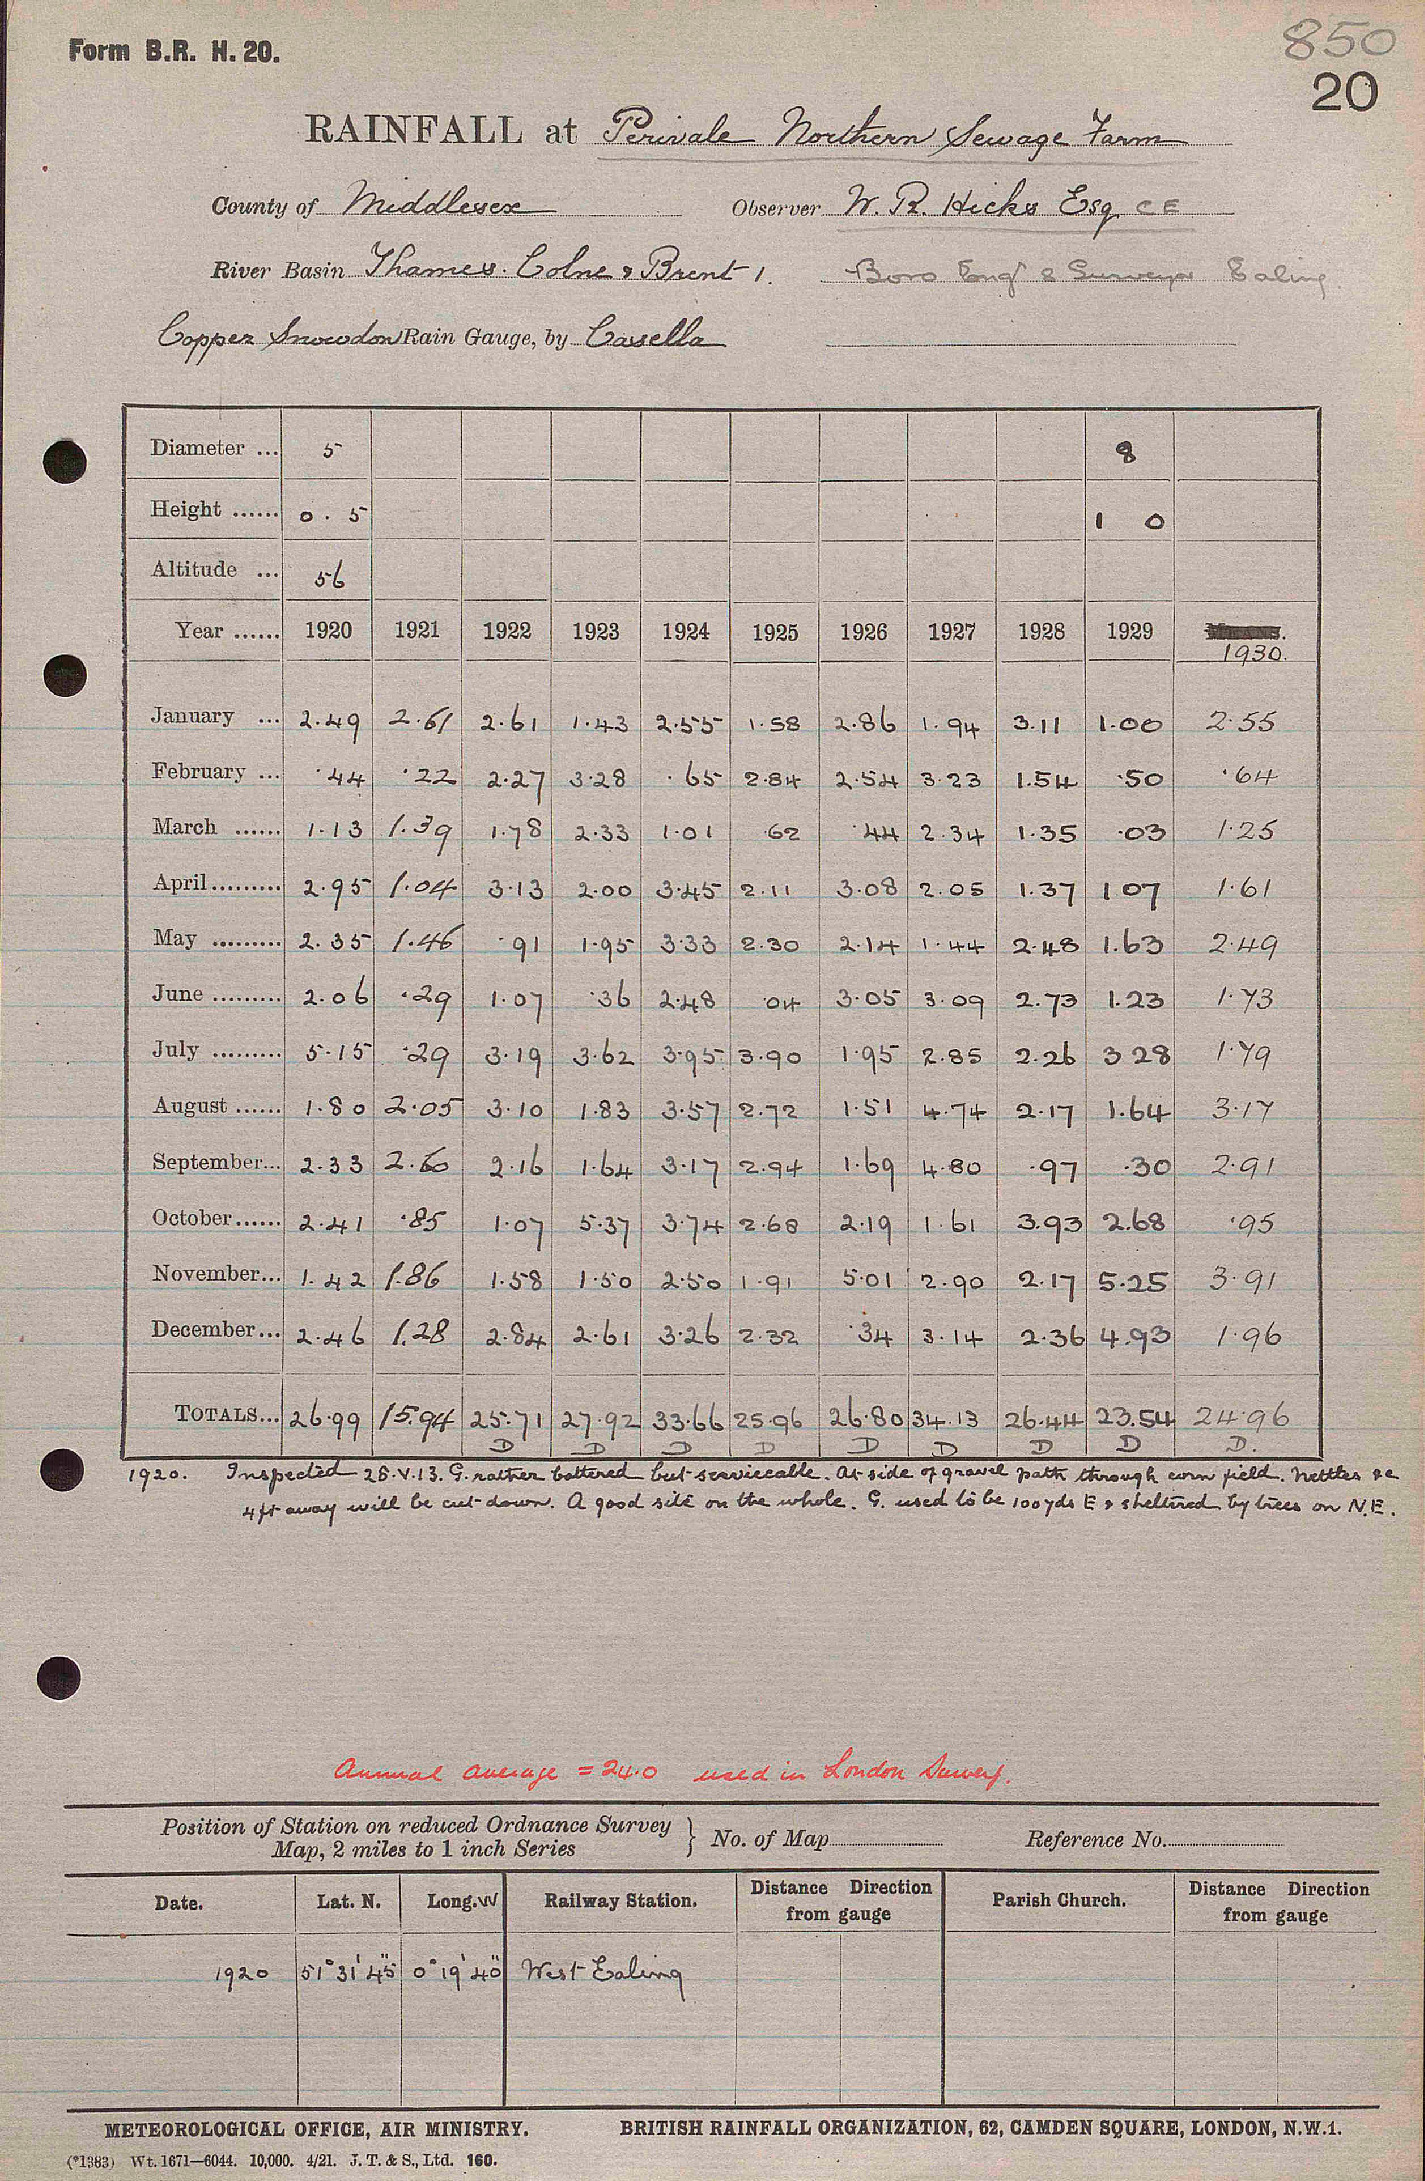 850
Form B.R. H. 20.
20
RAINFALL at Perivale Northern Sewage Farm
County of Middlesex Observer W. R. Hicks Esq. C E
River Basin Thames. Colne & Brent 1. Boro Engr & Surveyor Ealing.
Copper Snowdon Rain Gauge, by Casella
Diameter ... 5 8
Height ...... 0 . 5 1 0
Altitude ... 56
Year ...... 1920 1921 1922 1923 1924 1925 1926 1927 1928 1929
1930.
January ... 2.49 2.61 2.61 1.43 2.55 1.58 2.86 1.94 3.11 1.00 2.55
February ... .44 .22 2.27 3.28 .65 2.84 2.54 3.23 1.54 .50 .64
March ...... 1.13 1.39 1.78 2.33 1.01 .62 .44 2.34 1.35 .03 1.25
April ......... 2.95 1.04 3.13 2.00 3.45 2.11 3.08 2.05 1.37 1 07 1.61
May ......... 2.35 1.46 .91 1.95 3.33 2.30 2.14 1.44 2.48 1.63 2.49
June ......... 2.06 .29 1.07 .36 2.48 .04 3.05 3.09 2.73 1.23 1.73
July ......... 5.15 .29 3.19 3.62 3.95 3.90 1.95 2.85 2.26 3 28 1.79
August ...... 1.80 2.05 3.10 1.83 3.57 2.72 1.51 4.74 2.17 1.64 3.17
September... 2.33 2.60 2.16 1.64 3.17 2.94 1.69 4.80 .97 .30 2.91
October ...... 2.41 .85 1.07 5.37 3.74 2.68 2.19 1.61 3.93 2.68 .95
November... 1.42 1.86 1.58 1.50 2.50 1.91 5.01 2.90 2.17 5.25 3.91
December... 2.46 1.28 2.84 2.61 3.26 2.32 .34 3.14 2.36 4.93 1.96
TOTALS... 26.99 15.94 25.71 27.92 33.66 25.96 26.80 34.13 26.44 23.54 24.96
D D D D D D D D D.
1920. Inspected 28.V.13. G. rather battered but serviceable. At side of gravel path through corn field. Nettles &c
4 ft away will be cut down. A good site on the whole. G. used to be 100 yds E & sheltered by trees on N.E.
Annual average = 24.0 used in London Survey.
Position of Station on reduced Ordnance Survey
Map, 2 miles to 1 inch Series } No. of Map Reference No.
Date. Lat. N. Long. W Railway Station. Distance Direction from gauge Parish Church. Distance Direction from gauge
1920 51° 31' 45" 0° 19' 40" West Ealing
METEOROLOGICAL OFFICE, AIR MINISTRY. BRITISH RAINFALL ORGANIZATION, 62, CAMDEN SQUARE, LONDON, N.W.1.
(*1383) Wt. 1671—6044. 10,000. 4/21. J. T. & S., Ltd. 160.